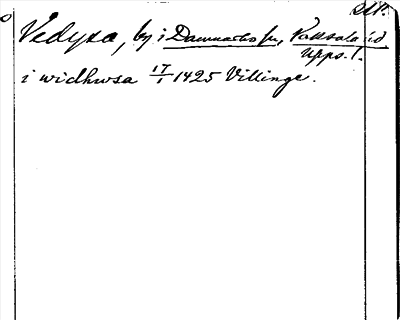 Vedyxa, by i Danmarks sn, Vaksala hd
Upps. l.
i widhwsa 17/1 1425 Villinge.